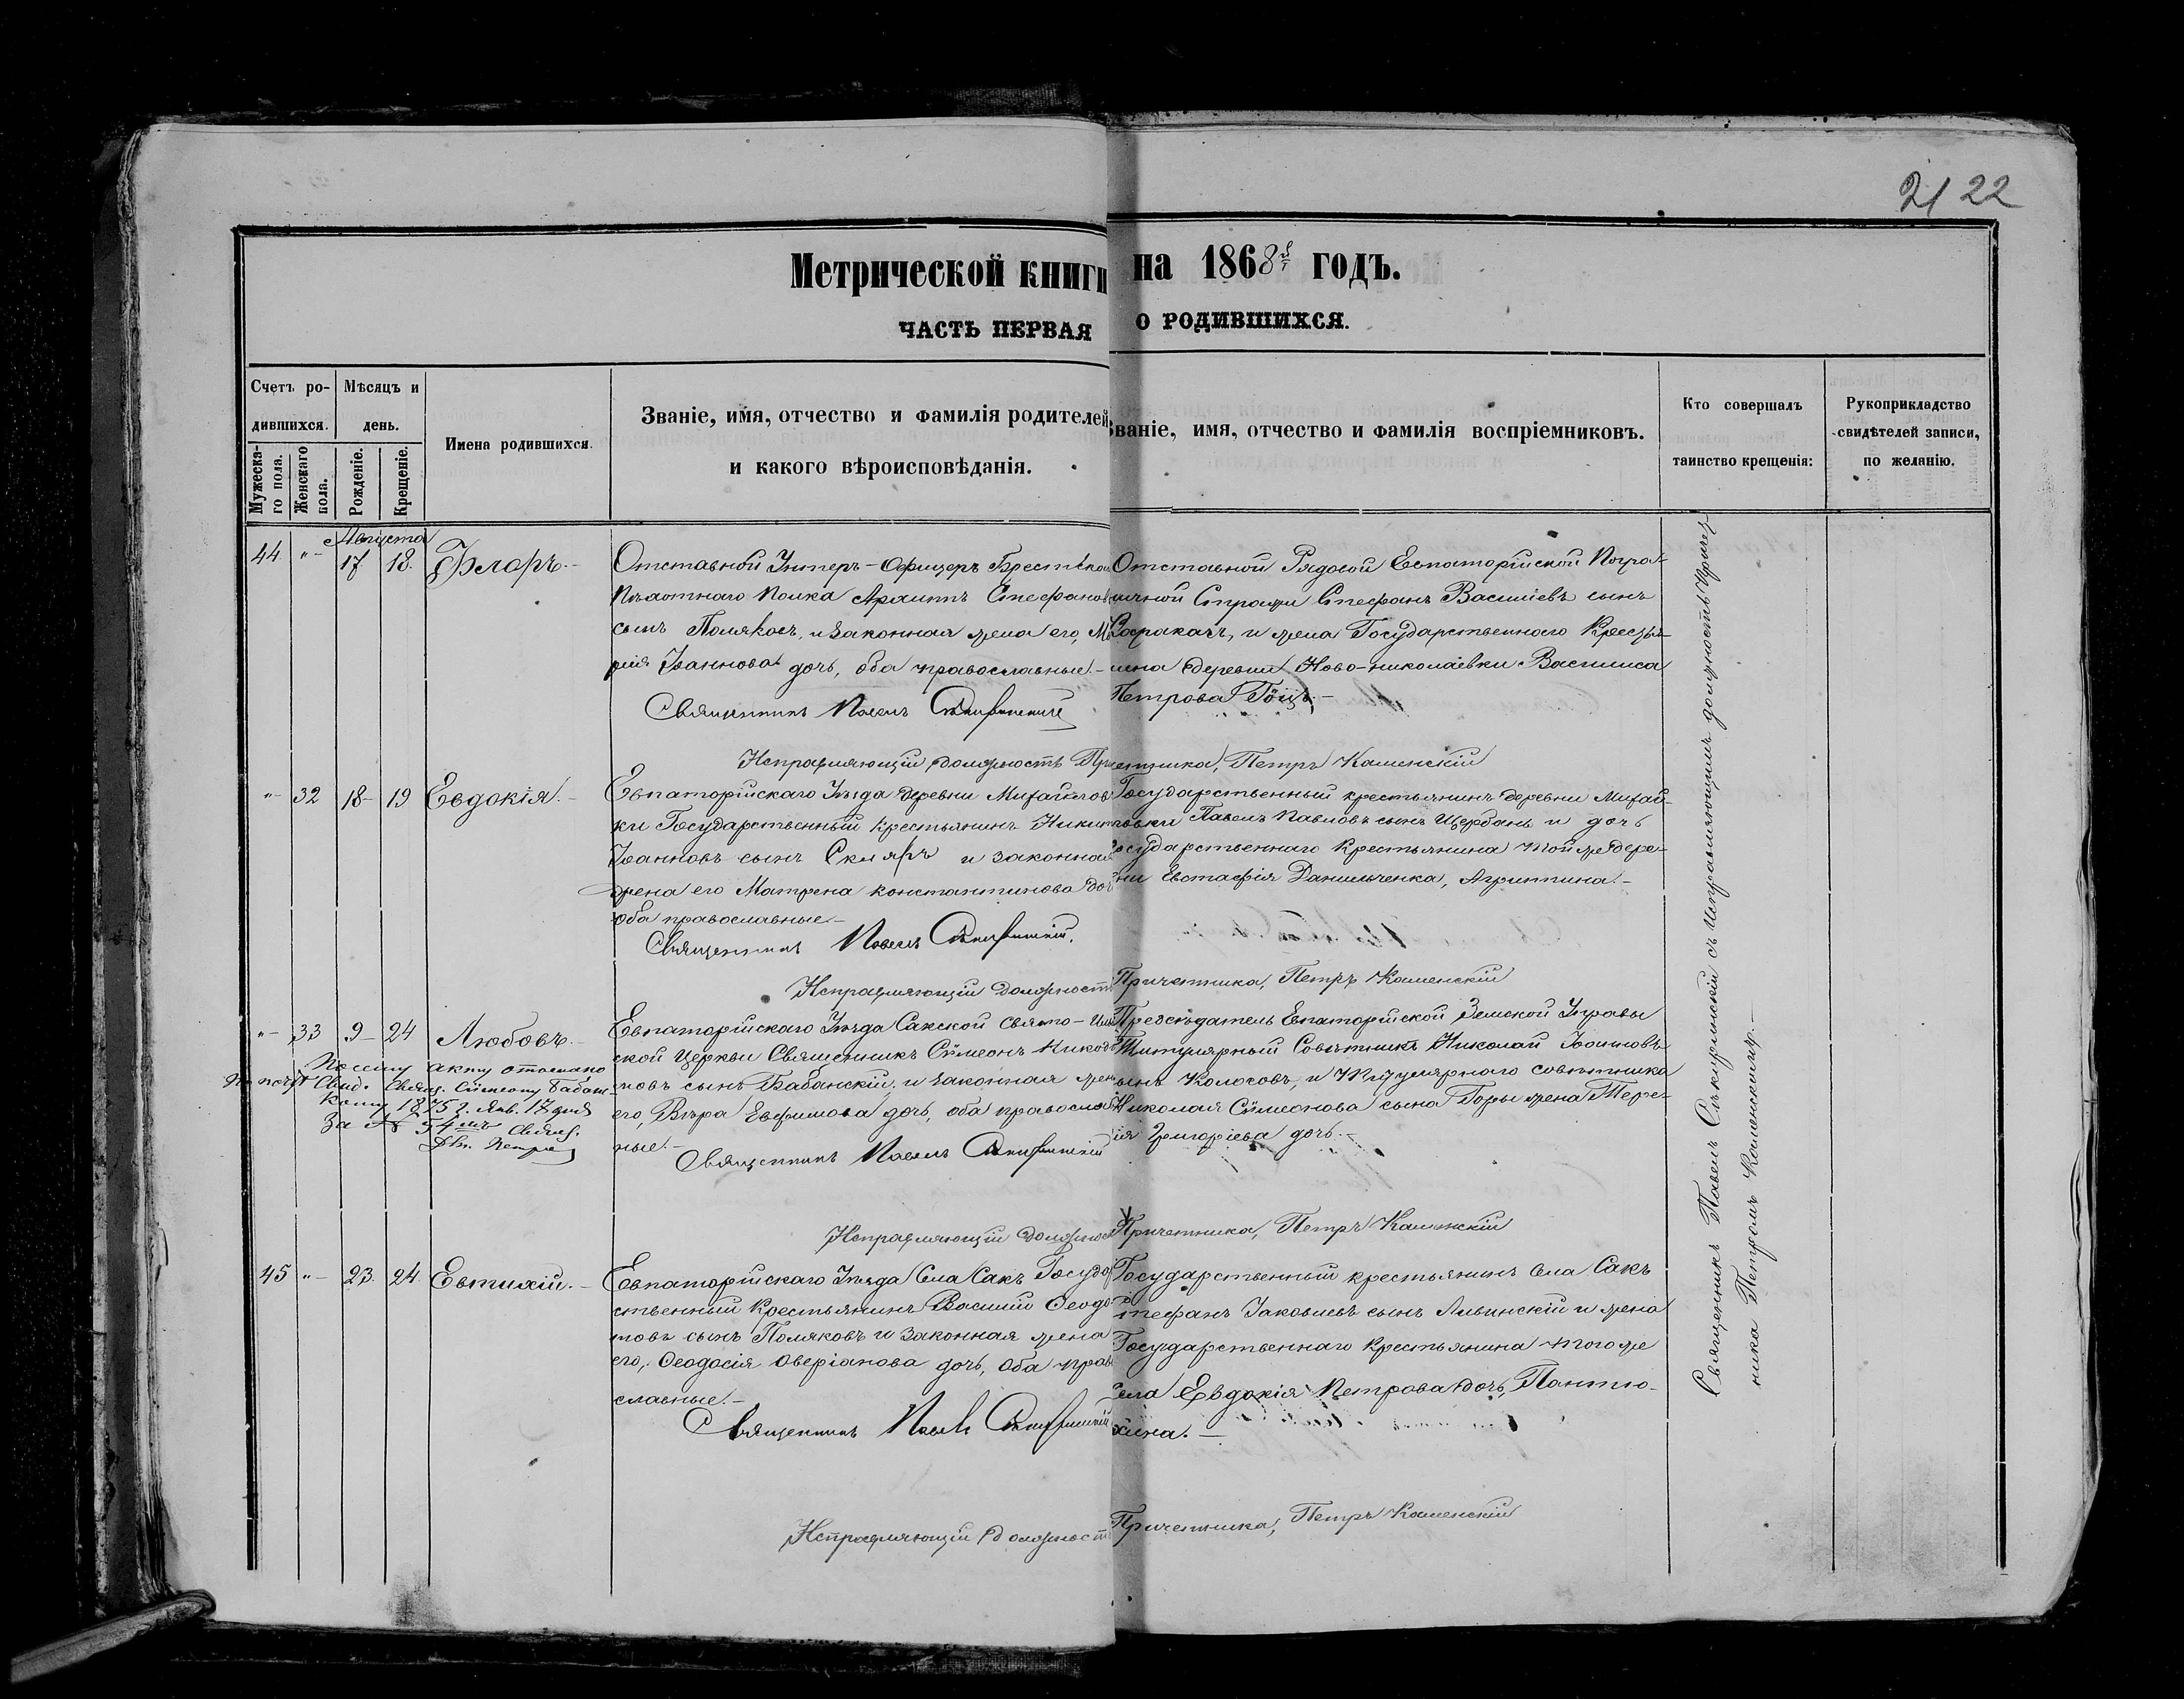 21 22
Метрической книги на 1868й годъ.
ЧАСТЬ ПЕРВАЯ О РОДИВШИХСЯ.
Счетъ ро-
дившихся.
Мужеска-
го пола.
Женскаго
пола.
Мѣсяцъ и
день.
Рожденіе.
Крещеніе.
Имена родившихся.
Званіе, имя, отчество и фамилія родителей
и какого вѣроисповѣданія.
Званіе, имя, отчество и фамилія воспріемниковъ.
Кто совершалъ
таинство крещенія:
Рукоприкладство
свидѣтелей записи,
по желанію.
Августа
44 "- 17 18. Флоръ.-
Отставной Унтеръ-Офицеръ Брестскаго
Пѣхотнаго Полка Архиппъ Стефановъ
сынъ Поляковъ, и законная жена его, Ма
рія Іоаннова дочь, оба православные.-
Священникъ Павелъ
Отставной Рядовой Евпаторійской Погра-
ничной Стражи Стефанъ Васильевъ сынъ
и жена Государственнаго Крестья-
нина деревни Ново-николаевки Василиса
Петрова
Исправляющій должность Причетника, Петръ Каменскій
"- 32 18- 19 Евдокія.-
Евпаторійскаго Уѣзда деревни Михайлов
ки Государственный крестьянинъ Никита
Іоанновъ сынъ Скляръ и законная
жена его Матрена константинова доч
оба православные.-
Священникъ Павелъ
Государственный крестьянинъ деревни Михай-
ловки Павелъ Павловъ сынъ Щербань и дочь
Государственнаго Крестьянина той же дере-
вни Евстафія Данильченка, Агриппина.-
Исправляющій должность Причетника, Петръ Каменскій
"- 33 9- 24 Любовь.-
По сему акту отослано
Свид. Свящ. Сѵмеону Бабан-
кому 1875 г. Янв. 17 дня
За № 54мъ Свящ.
Дм. Петров
Евпаторійскаго Уѣзда Сакской Свято-Ильин
ской Церкви Священникъ Сѵмеонъ Никоди
мовъ сынъ Бабанскій, и законная жена
его, Вѣра Евфимова дочь, оба православ
ные.-
Священникъ Павелъ
Предсѣдатель Евпаторійской Земской Управы
Титулярный Совѣтникъ Николай Іоанновъ
сынъ Колосовъ, и Титулярнаго совѣтника
Николая Сѵмеонова сына Горы жена
Григоріева дочь.-
Исправляющій должность Причетника, Петръ Каменскій
45 "- 23. 24. Евтихій.-
Евпаторійскаго Уѣзда Села Сакъ Государ
ственный Крестьянинъ Василій Ѳеодо
товъ сынъ Поляковъ и законная жена
его, Ѳеодосія Оверіанова дочь, оба право
славные.-
Священникъ Павелъ
Государственный крестьянинъ Села Сакъ
Стефанъ Іаковлевъ сынъ Ливинскій и жена
Государственнаго Крестьянина того же
Села Евдокія Петрова дочь, Пантю-
хина.-
Исправляющій должность Причетника, Петръ Каменскій
Священникъ Павелъ съ Исправляющимъ должность Причет-
ника Петромъ Каменскимъ.-